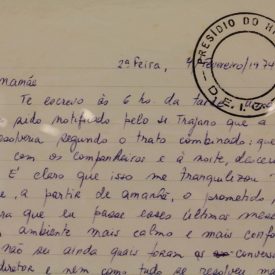 PRESÍDIO DO
D.E.I.
2ª Feira, 4 Fevereiro/1974
mamãe
Te escrevo às 6 hs. da tarde
sido notificado pelo sr Trajano que a
segundo o trato combinado: que
com os companheiros e à noite,
É claro que isso me tranquilizou
a partir de amanhã, o prometido
que eu passe esses últimos
ambiente mais calmo e mais
não sei ainda quais foram as
diretor e nem como tudo se